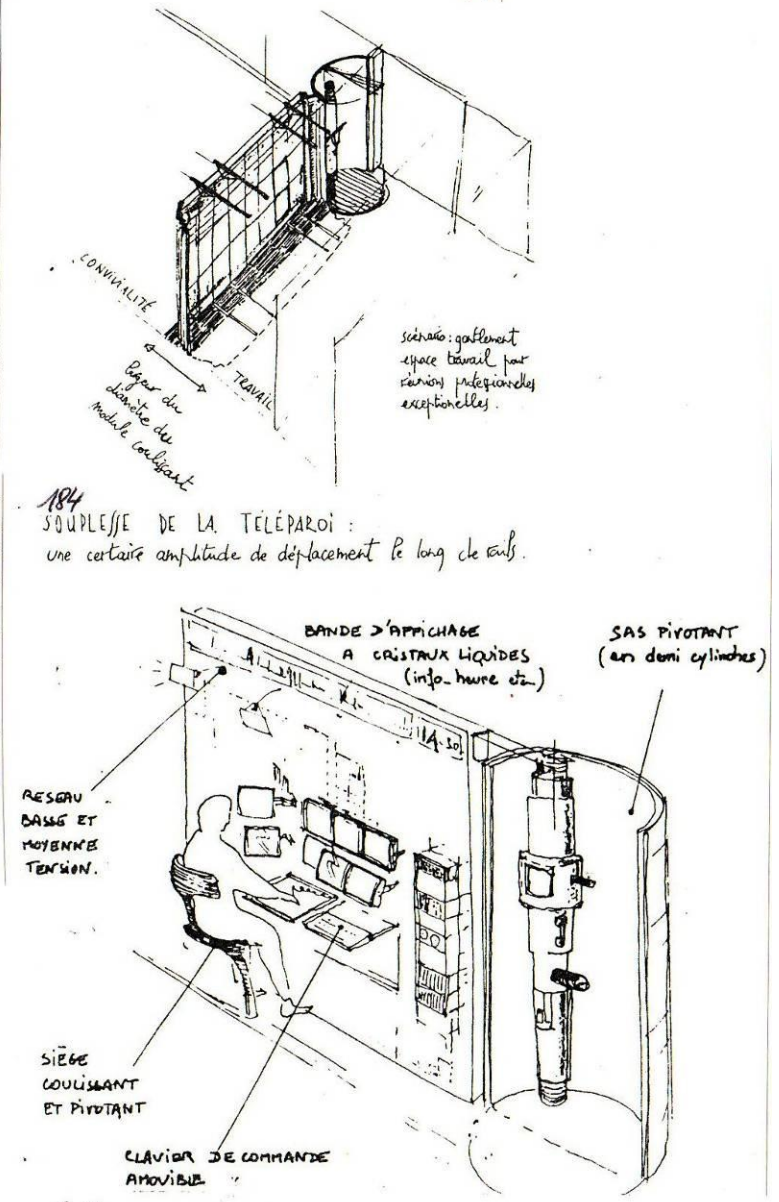 CONVIVIALITÉ
TRAVAIL
largeur du
diamètre du
module coulissant
scénario : gonflement
espace travail pour
réunions professionnelles
exceptionelles.
184
SOUPLESSE DE LA TÉLÉPAROI :
une certaine amplitude de déplacement le long de rails.
BANDE D'AFFICHAGE
A CRISTAUX LIQUIDES
(info_heure etc)
SAS PIVOTANT
(en demi cylindres)
RESEAU
BASSE ET
MOYENNE
TENSION.
SIÈGE
COULISSANT
ET PIVOTANT
CLAVIER DE COMMANDE
AMOVIBLE